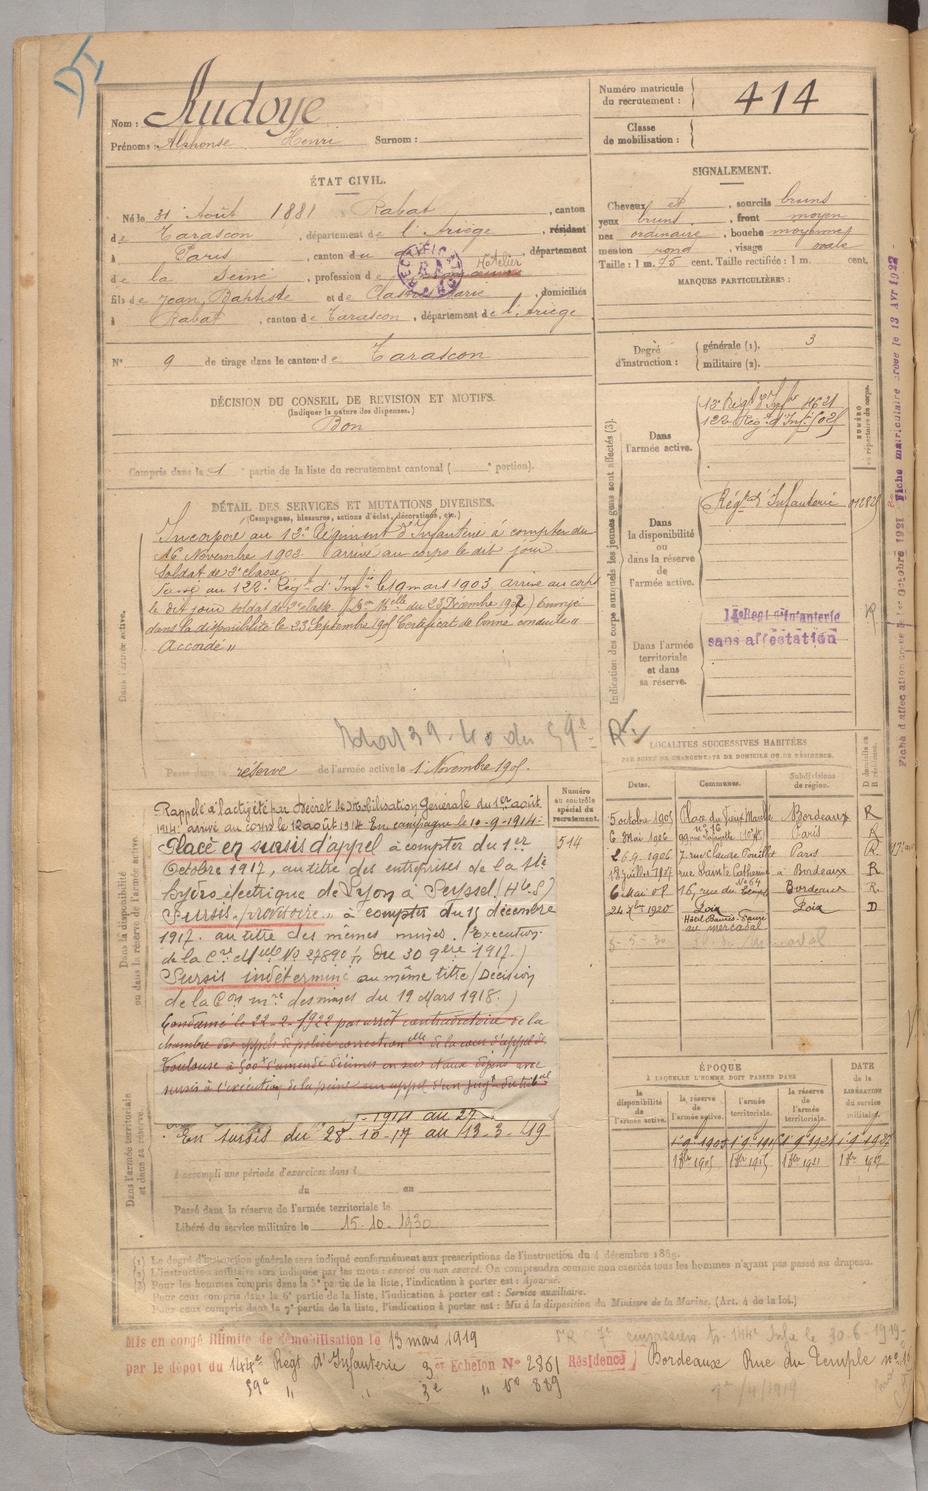 Nom : Audoye
Prénoms : Alphonse Henri Surnom :
Numéro matricule du recrutement : 414
Classe de mobilisation :
ÉTAT CIVIL.
Né le 31 Août 1881 à Rabat, canton
de Tarascon, département de l'Ariège, résidant
à Paris, canton du département
de la Seine, profession de Hôtelier
fils de Jean Baptiste et de Marie domiciliés
à Rabat, canton de Tarascon, département de l'Ariège
N° 9 de tirage dans le canton de Tarascon
SIGNALEMENT.
Cheveux et sourcils bruns
yeux bruns, front moyen
nez ordinaire, bouche moyenne
menton rond, visage ovale
Taille : 1 m. 75 cent. Taille rectifiée : 1 m. cent.
MARQUES PARTICULIÈRES :
Degré d'instruction : générale (1). 3
militaire (2).
DÉCISION DU CONSEIL DE REVISION ET MOTIFS.
(Indiquer la nature des dispenses.)
Bon
Compris dans la 1 partie de la liste du recrutement cantonal ( portion).
DÉTAIL DES SERVICES ET MUTATIONS DIVERSES.
(Campagnes, blessures, actions d'éclat, décorations, etc.)
Dans l'armée active.
Incorporé au 12e Régiment d'Infanterie à compter du
16 Novembre 1902 arrivé au corps le dit jour
soldat de 2e classe
Passé au 122e Régt d'Infrie le 19 mars 1903 arrivé au corps
le dit jour soldat de 2e classe du 23 Décembre 1902) Envoyé
dans la disponibilité le 23 Septembre 1905 Certificat de bonne conduite "
Accordé "
Passé dans la réserve de l'armée active le 1 Novembre 1905.
Dans la disponibilité ou dans la réserve de l'armée active
Rappelé à l'activité par Décret de Mobilisation Générale du 1er août
1914 arrivé au corps le 12 août 1914 En campagne le 10-9-1914
Placé en sursis d'appel à compter du 1er
Octobre 1917, au titre des entreprises de la Sté
hydro électrique de Lyon à Seyssel (Hte S)
Sursis provisoire " à compter du 15 décembre
1917. au titre des mêmes mines. (Exécution
de la Cre Mlle No 27890 du 30 9bre 1917.)
Sursis indéterminé au même titre (Décision
de la Con mre des mines du 19 Mars 1918.)
Condamné le 22-2-1922 par arrêt contradictoire de la
chambre des appels de police correctionelle de la cour d'appel de
Toulouse à 500f d'amende décimes en sus et aux dépens avec
sursis à l'exécution de la peine sur appel d'un jugt du tribal
1914 au 27
En sursis du 28-10-17 au 13-3-19
Dans l'armée territoriale et dans sa réserve.
A accompli une période d'exercices dans l
du au
Passé dans la réserve de l'armée territoriale le
Libéré du service militaire le 15-10-1930
Numéro au contrôle spécial du recrutement.
514
Indication des corps auxquels les jeunes gens sont affectés (3).
NUMÉRO au répertoire du corps.
Dans l'armée active.
12e Régt d'Infie 4621
122 Régt d'Infie
Dans la disponibilité ou dans la réserve de l'armée active.
Régt d'Infanterie
Dans l'armée territoriale et dans sa réserve.
14e Regt d'Infanterie
sans affectation
Fiche matriculaire
LOCALITÉS SUCCESSIVES HABITÉES
PAR SUITE DE CHANGEMENTS DE DOMICILE OU DE RÉSIDENCE.
Dates. Communes. Subdivisions de région. D domicile ou R résidence.
5 octobre 1905 Place du Vieux Marché Bordeaux R
6 Mai 1906 Paris R
26.9.1906 7 rue Claude Pouillet Paris R
18 juillet 1907 rue Sainte Catherine à Bordeaux R
6 Mai 08 16, rue du Temple Bordeaux R
24 7bre 1920 Foix Foix D
au mercadal
ÉPOQUE
À LAQUELLE L'HOMME DOIT PASSER DANS
la disponibilité de l'armée active. la réserve de l'armée active. l'armée territoriale. la réserve de l'armée territoriale. DATE de la LIBÉRATION du service militaire.
1 9 1905 1 9 1915 1 9 1921 1 9 1927
1 8bre 1905 1 8bre 1915 1 8bre 1921 1 8bre 1927
(1) Le degré d'instruction générale sera indiqué conformément aux prescriptions de l'instruction du 4 décembre 1889.
(2) L'instruction militaire sera indiquée par les mots : exercé ou non exercé. On comprendra comme non exercés tous les hommes n'ayant pas passé au drapeau.
(3) Pour les hommes compris dans la 5e partie de la liste, l'indication à porter est : Ajourné.
Pour ceux compris dans la 6e partie de la liste, l'indication à porter est : Service auxiliaire.
Pour ceux compris dans la 7e partie de la liste, l'indication à porter est : Mis à la disposition du Ministre de la Marine. (Art. 4 de la loi.)
Mis en congé illimité de démobilisation le 13 mars 1919
par le dépôt du 144e Regt d'Infanterie 3 et Echelon No 2861 Résidence Bordeaux Rue du Temple
59e " " 3e " No 889